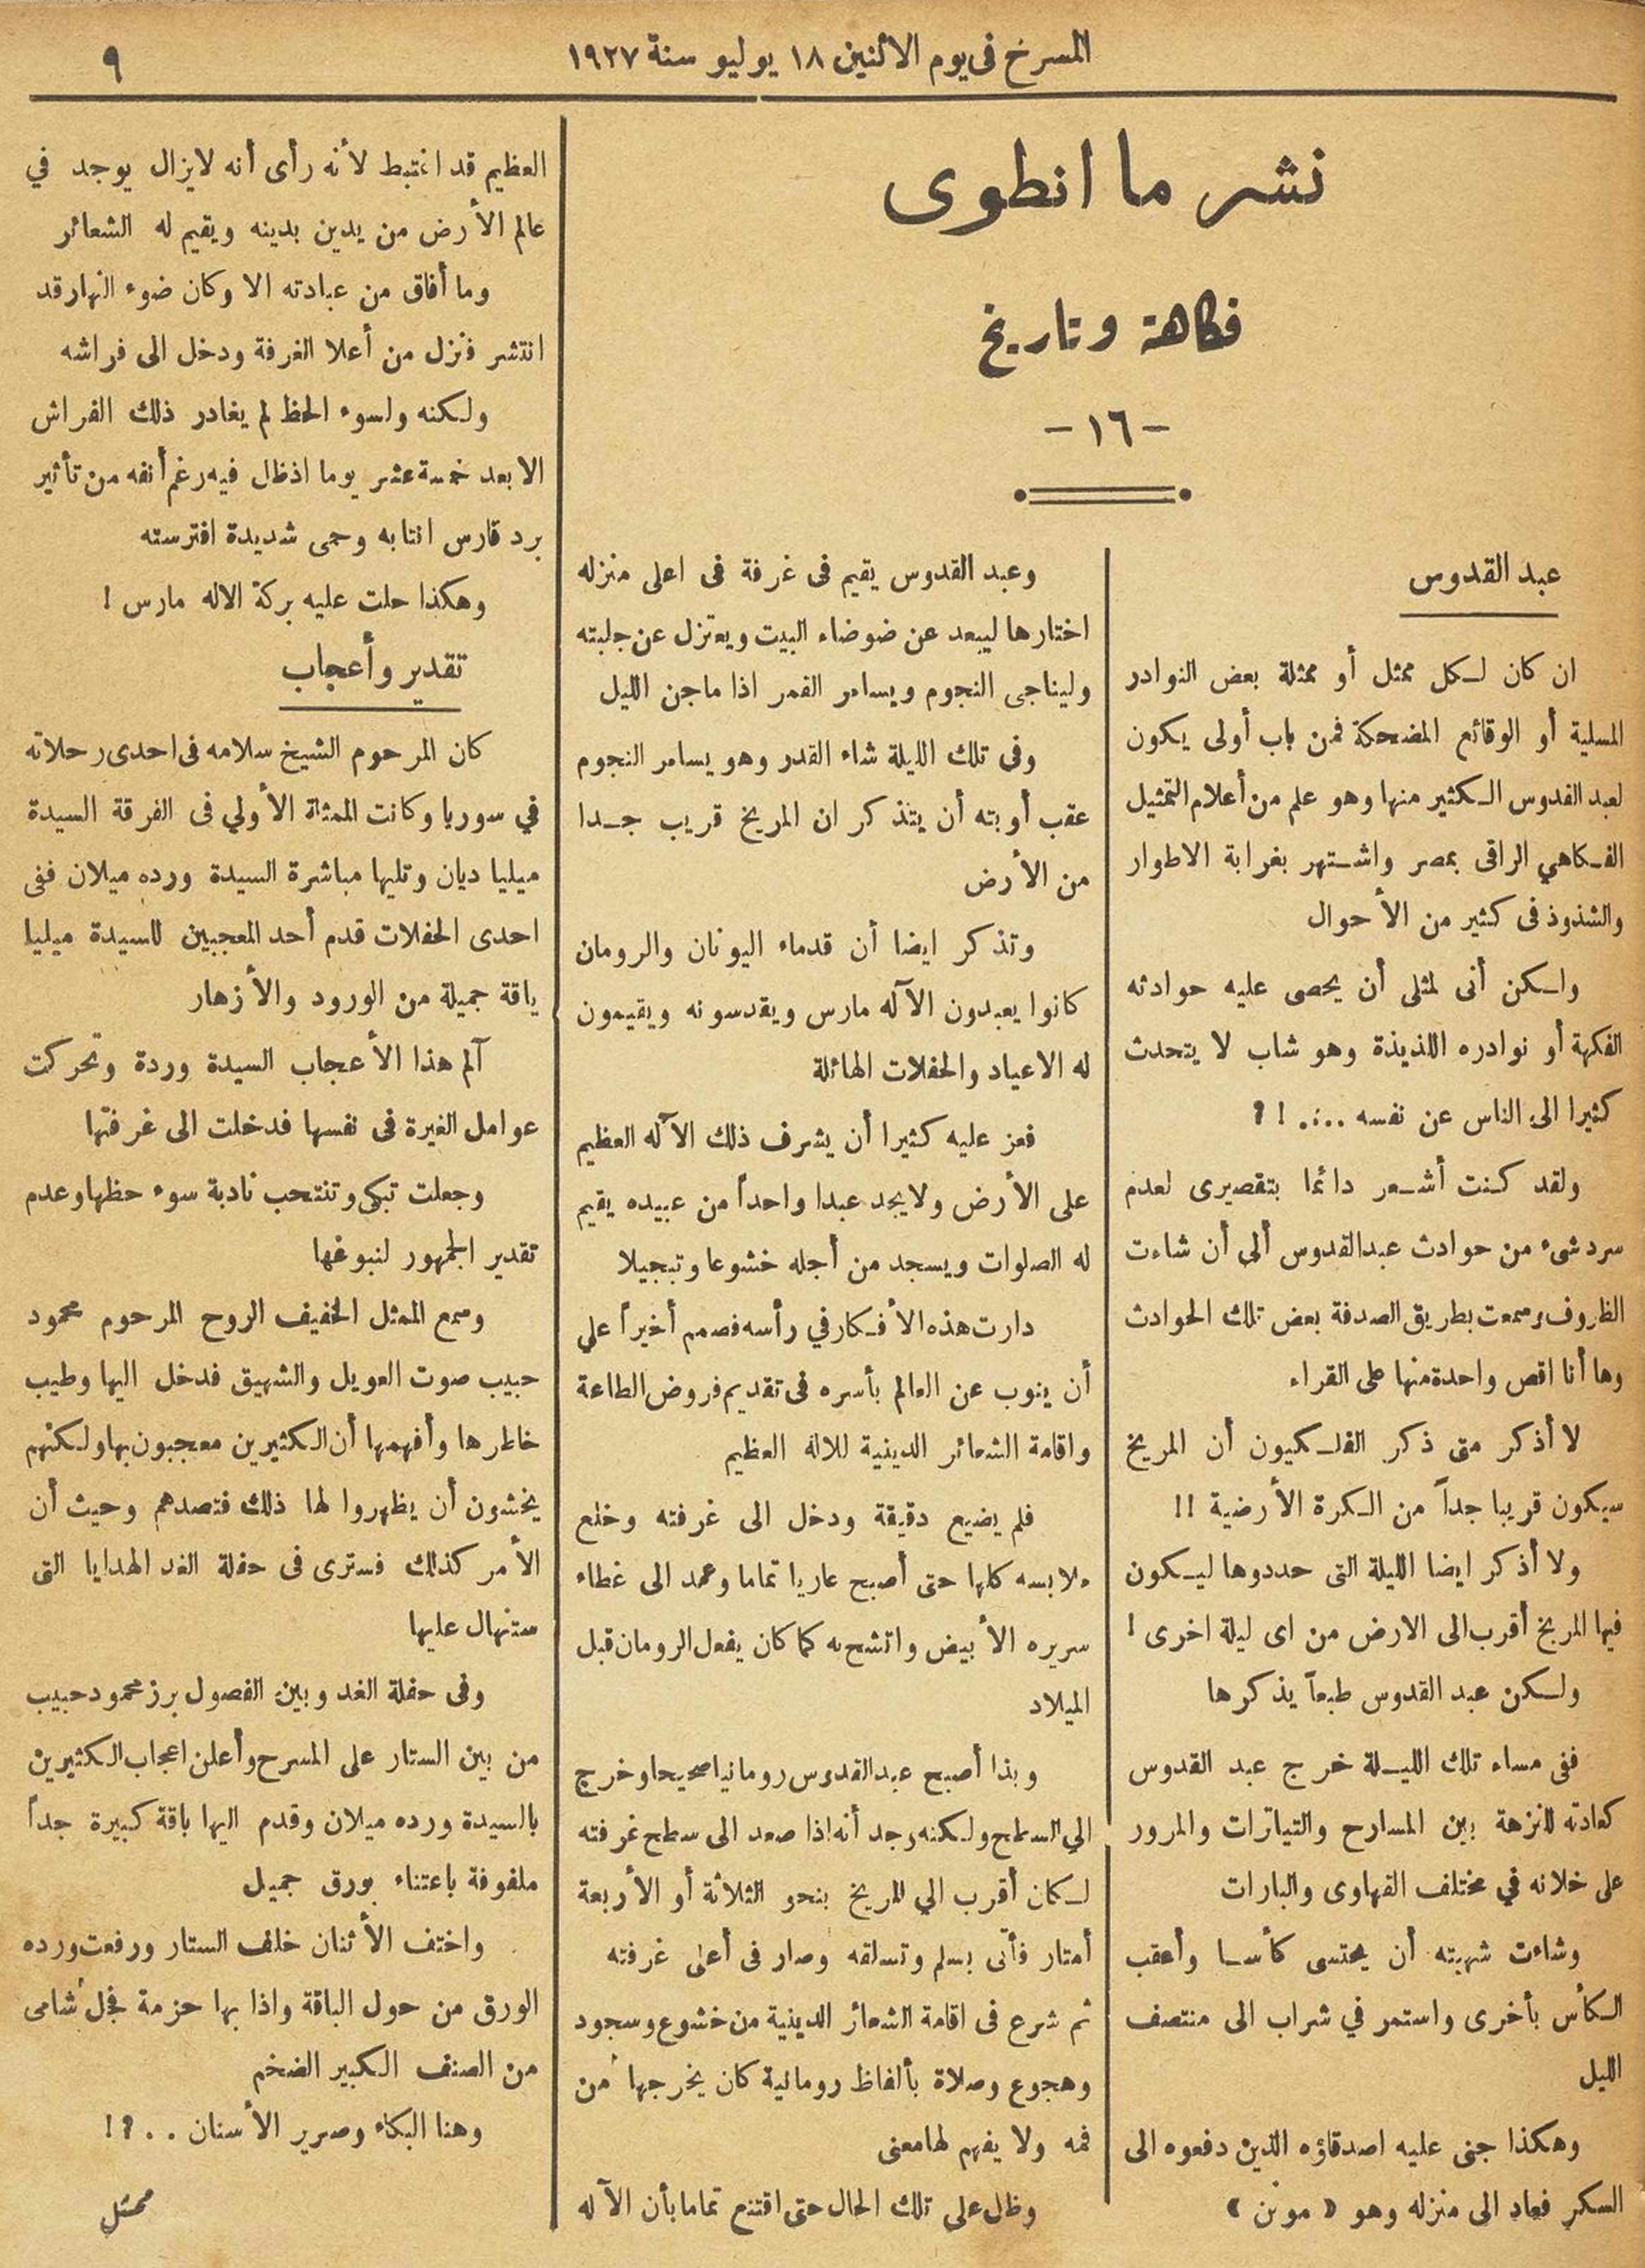 المسرح فى يوم الاثنين ١٨ يوليو سنة ١٩٢٧
٩
نشر ما انطوى
فكاهة وتاريخ
- ١٦ -
عبد القدوس
ان كان لكل ممثل أو ممثلة بعض النوادر
المسلية أو الوقائع المضحكة فمن باب أولى يكون
لعبد القدوس الكثير منها وهو علم من أعلام التمثيل
الفكاهي الراقى بمصر واشتهر بغرابة الاطوار
والشذوذ فى كثير من الأحوال
ولكن أنى لمثلى أن يحصى عليه حوادثه
الفكهة أو نوادره اللذيذة وهو شاب لا يتحدث
كثيرا الى الناس عن نفسه .... ! ؟
ولقد كنت أشعر دائما بتقصيرى لعدم
سرد شىء من حوادث عبدالقدوس ألى أن شاءت
الظروف وسمعت بطريق الصدفة بعض تلك الحوادث
وها أنا اقص واحدة منها على القراء
لا أذكر متى ذكر الفلكيون أن المريخ
سيكون قريبا جداً من الكرة الأرضية !!
ولا أذكر ايضا الليلة التى حددوها ليكون
فيها المريخ أقرب الى الارض من اى ليلة اخرى !
ولكن عبد القدوس طبعاً يذكرها
ففى مساء تلك الليلة خرج عبد القدوس
كعادته للنزهة بين المسارح والتياترات والمرور
على خلانه في مختلف القهاوى والبارات
وشاءت شهيته أن يحتسى كأسا وأعقب
الكأس بأخرى واستمر في شراب الى منتصف
الليل
وهكذا جنى عليه اصدقاؤه الذين دفعوه الى
السكر فعاد الى منزله وهو « مونن »
وعبد القدوس يقيم فى غرفة فى اعلى منزله
اختارها ليبعد عن ضوضاء البيت ويعتزل عن جلبته
وليناجى النجوم ويسامر القمر اذا ماجن الليل
وفى تلك الليلة شاء القدر وهو يسامر النجوم
عقب أوبته أن يتذكر ان المريخ قريب جدا
من الأرض
وتذكر ايضا أن قدماء اليونان والرومان
كانوا يعبدون الآله مارس ويقدسونه ويقيمون
له الاعياد والحفلات الهائلة
فعز عليه كثيرا أن يشرف ذلك الآله العظيم
على الأرض ولا يجد عبدا واحداً من عبيده يقيم
له الصلوات ويسجد من أجله خشوعا وتبجيلا
دارت هذه الأفكار في رأسه فصمم أخيراً علي
أن ينوب عن العالم بأسره فى تقديم فروض الطاعة
واقامة الشعائر الدينية للاله العظيم
فلم يضيع دقيقة ودخل الى غرفته وخلع
ملابسه كلها حتى أصبح عاريا تماما وعمد الى غطاء
سريره الأبيض واتشح به كما كان يفعل الرومان قبل
الميلاد
وبذا أصبح عبدالقدوس رومانيا صحيحا وخرج
الي السطح ولكنه وجد أنه اذا صعد الى سطح غرفته
لكان أقرب الي المريخ بنحو الثلاثة أو الأربعة
أمتار فأتى بسلم وتسلقه وصار فى أعلى غرفته
ثم شرع فى اقامة الشعائر الدينية من خشوع وسجود
وهجوع وصلاة بألفاظ رومانية كان يخرجها من
فمه ولا يفهم لها معنى
وظل على تلك الحال حتى اقتنع تماما بأن الآله
العظيم قد اغتبط لأنه رأى أنه لايزال يوجد في
عالم الأرض من يدين بدينه ويقيم له الشعائر
وما أفاق من عبادته الا وكان ضوء النهار قد
انتشر فنزل من أعلا الغرفة ودخل الى فراشه
ولكنه ولسوء الحظ لم يغادر ذلك الفراش
الا بعد خمسة عشر يوما اذظل فيه رغم أنفه من تأثير
برد قارس انتابه وحمى شديدة افترسته
وهكذا حلت عليه بركة الاله مارس !
تقدير وأعجاب
كان المرحوم الشيخ سلامه فى احدى رحلاته
في سوريا وكانت الممثلة الأولي فى الفرقة السيدة
ميليا ديان وتليها مباشرة السيدة ورده ميلان ففى
احدى الحفلات قدم أحد المعجبين للسيدة ميليا
باقة جميلة من الورود والأزهار
آلم هذا الأعجاب السيدة وردة وتحركت
عوامل الغيرة فى نفسها فدخلت الى غرفتها
وجعلت تبكى وتنتحب نادبة سوء حظها وعدم
تقدير الجمهور لنبوغها
وسمع الممثل الخفيف الروح المرحوم محمود
حبيب صوت العويل والشهيق فدخل اليها وطيب
خاطرها وأفهمها أن الكثيرين معجبون بها ولكنهم
يخشون أن يظهروا لها ذلك فتصدهم وحيث أن
الأمر كذلك فسترى فى حفلة الغد الهدايا التى
ستنهال عليها
وفى حفلة الغد وبين الفصول برز محمود حبيب
من بين الستار على المسرح وأعلن اعجاب الكثيرين
بالسيدة ورده ميلان وقدم اليها باقة كبيرة جداً
ملفوفة باعتناء بورق جميل
واختف الأثنان خلف الستار ورفعت ورده
الورق من حول الباقة واذا بها حزمة فجل شامى
من الصنف الكبير الضخم
وهنا البكاء وصرير الأسنان . . ؟ !
ممثل